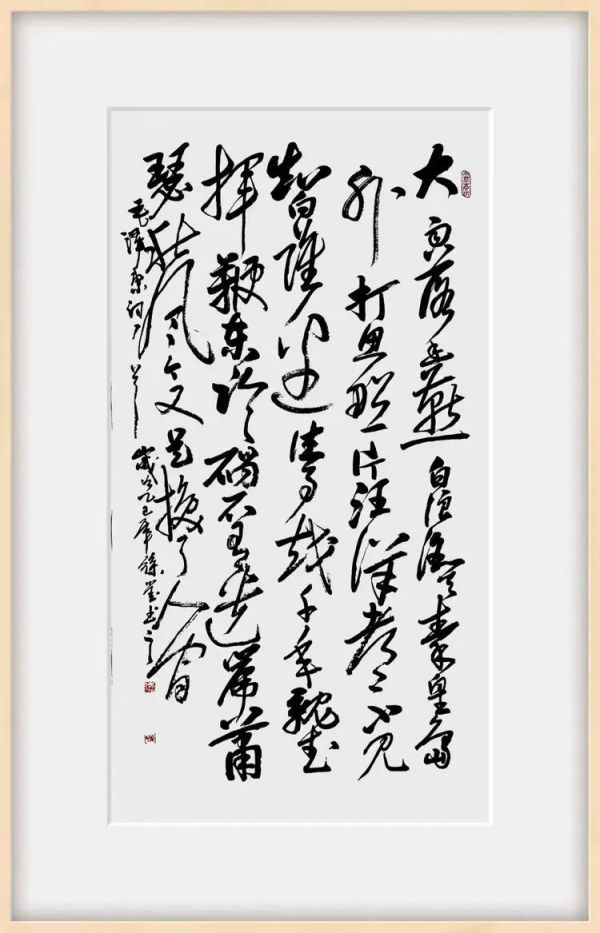 大雨落幽燕白浪滔天秦皇島
外打魚船一片汪洋都不見
知向誰邊往事越千年魏武
揮鞭東臨碣石有遺篇蕭
瑟秋風今又是換了人間
毛澤東詞 歲 乙巳年 書之